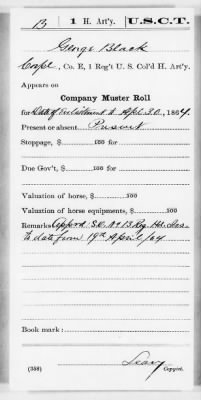 B | 1 H. Art'y. | U.S.C.T.
George Black
Corpl., Co. E, 1 Reg't U. S. Col'd H. Art'y.
Appears on
Company Muster Roll
for Date of Enlistment to Apl. 30, 1864.
Present or absent Present
Stoppage, $ 100 for
Due Gov't, $ 100 for
Valuation of horse, $ 100
Valuation of horse equipments, $ 100
Remarks: Appord S.O. No 13 Reg. Hd. Qrs
to date from 19th April /64
Book mark:
(358)
Leary
Copyist.